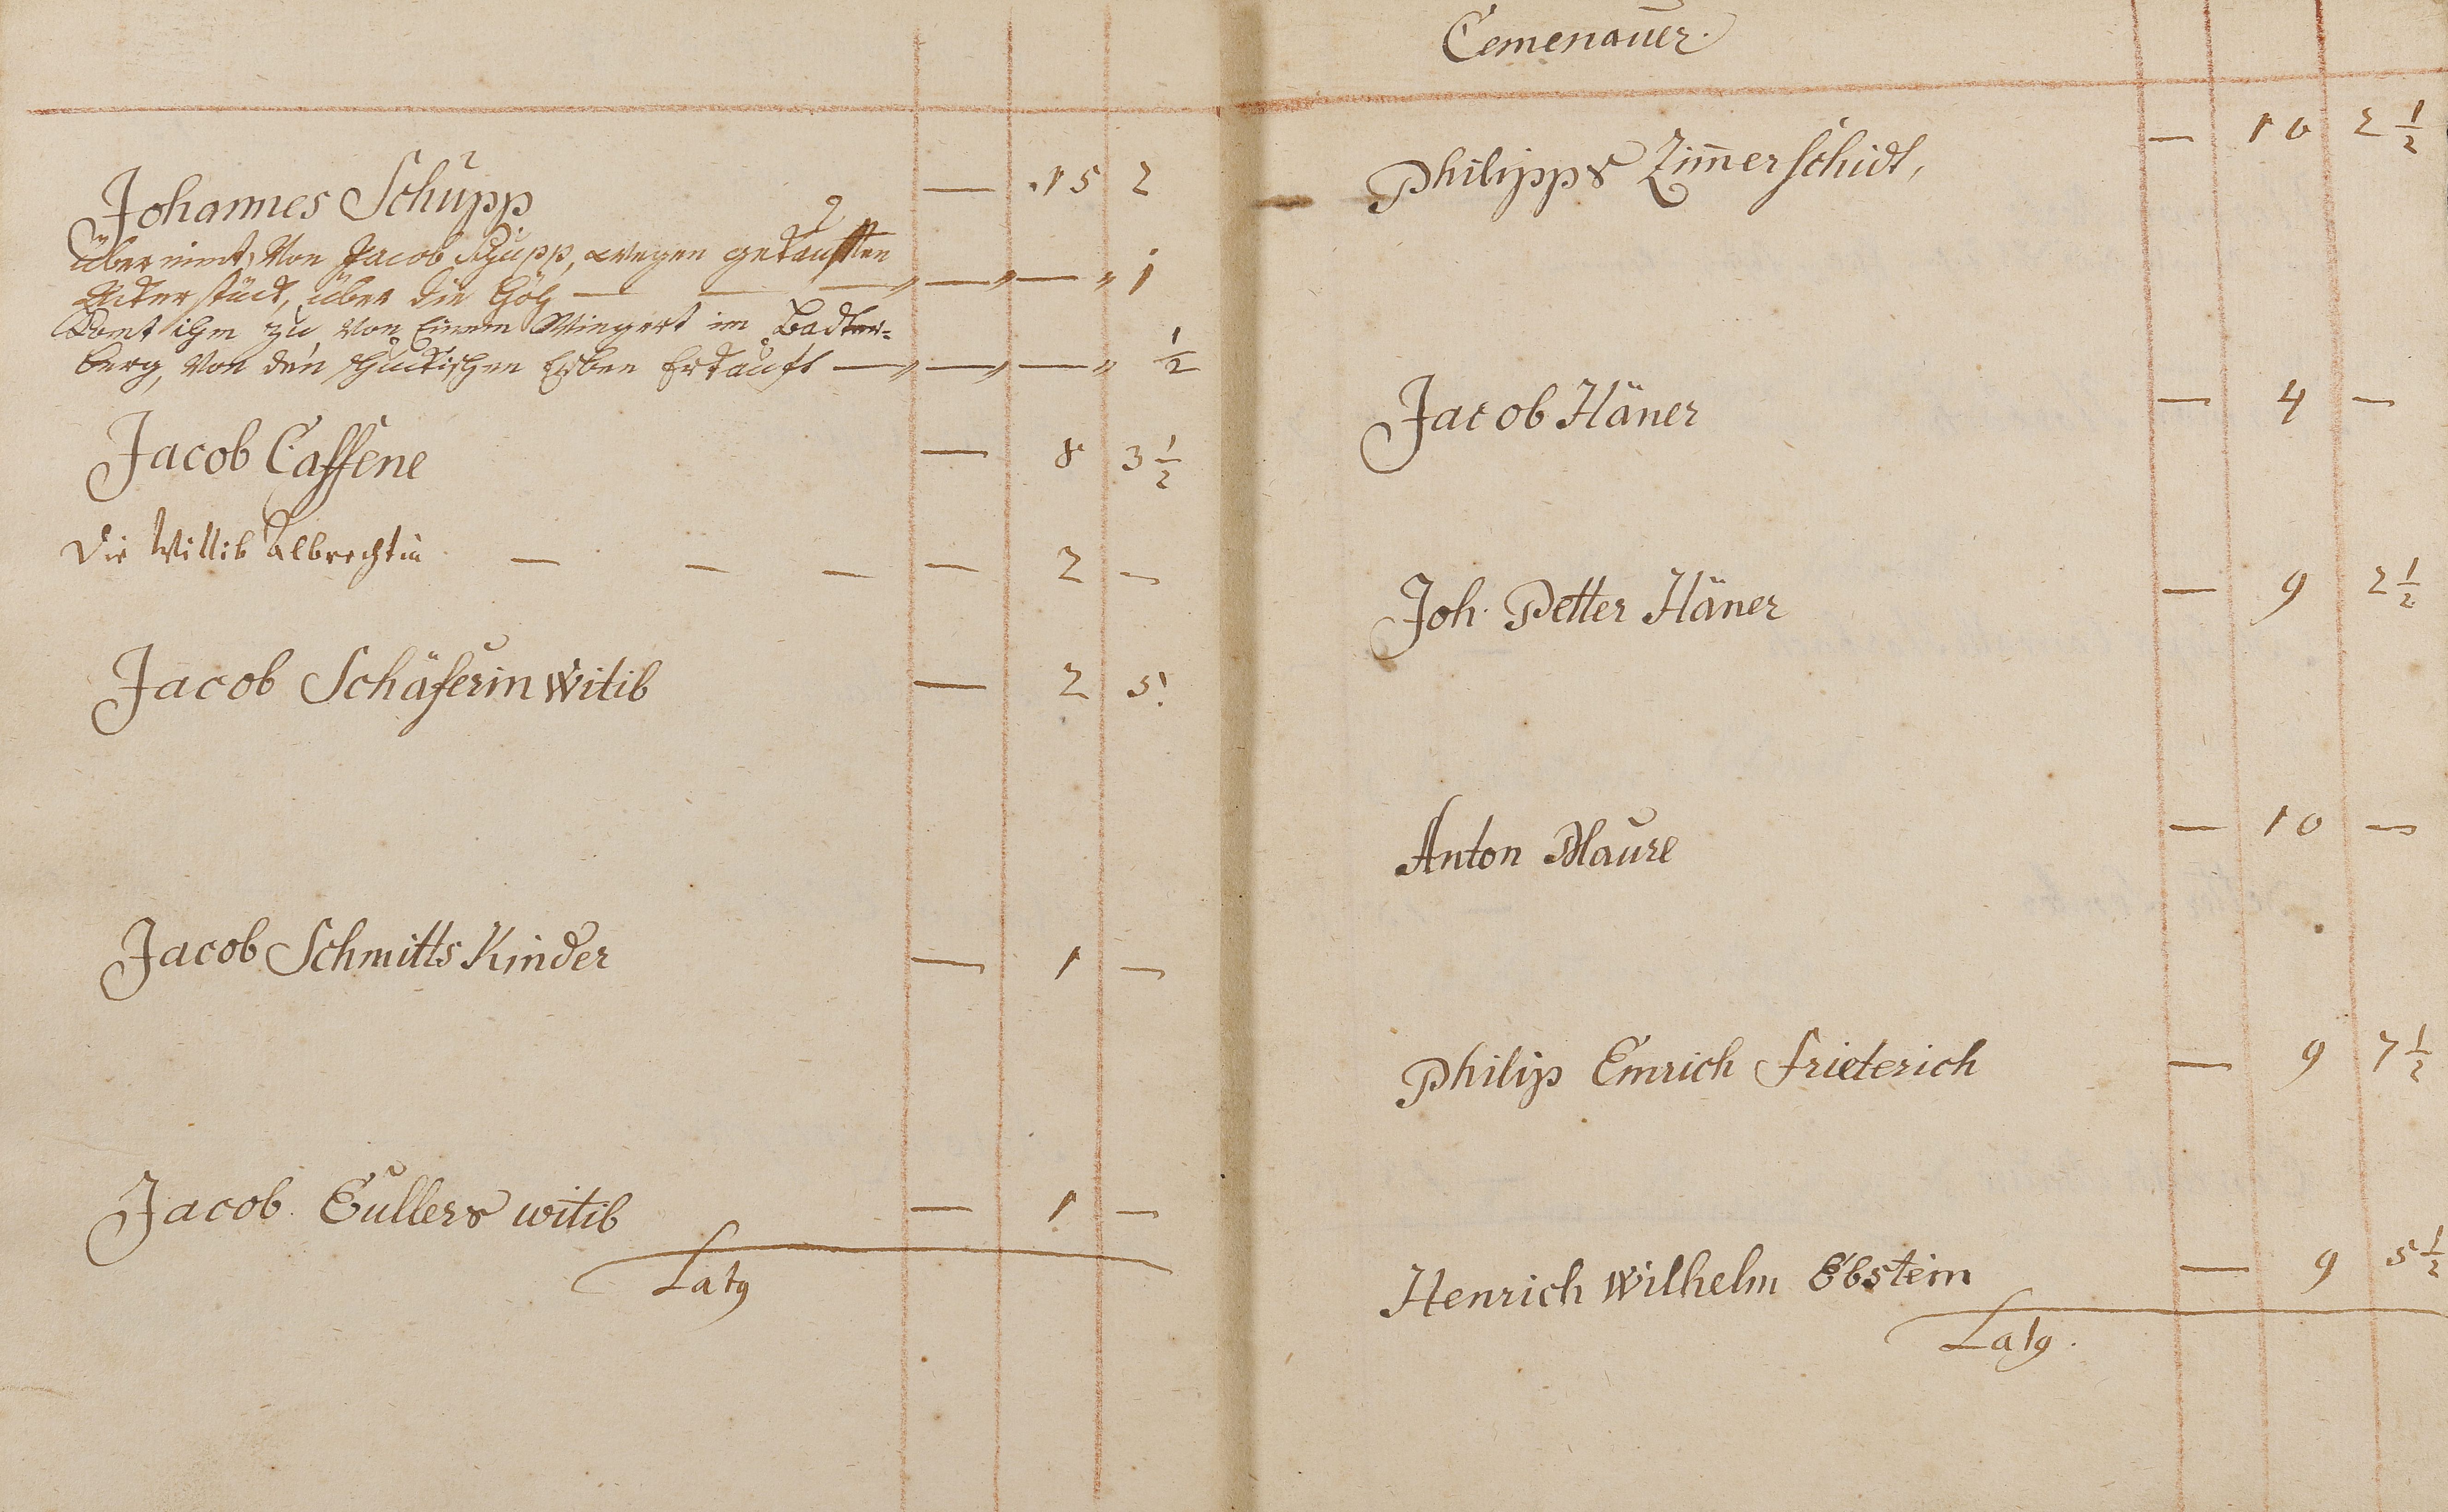 Johannes Schupp — 15 2
über nimt, Von Jacob Schupp, wegen gekaufften
Ackerstück, über die Höh — — — „ — „ — „ 1
Komt ihm zu Von Einem Wingert im Badter=
berg, Von den Erben Erkauft — „ — „ — „ ½
Jacob Caffene — 8 3½
Die Wittib Albrechtin — — — — 2 —
Jacob Schäferin Witib — 2 5.
Jacob Schmitts Kinder — 1 —
Jacob Gullers witib — 1 —
Latg
Cemenauer.
Philipps Zim̄erschidt, — 10 2½
Jacob Häner — 4 —
Joh. Petter Häner — 9 2½
Anton Maure — 10 —
Philip Emrich Frieterich — 9 7½
Henrich Wilhelm Ebstein — 9 5½
Latg.